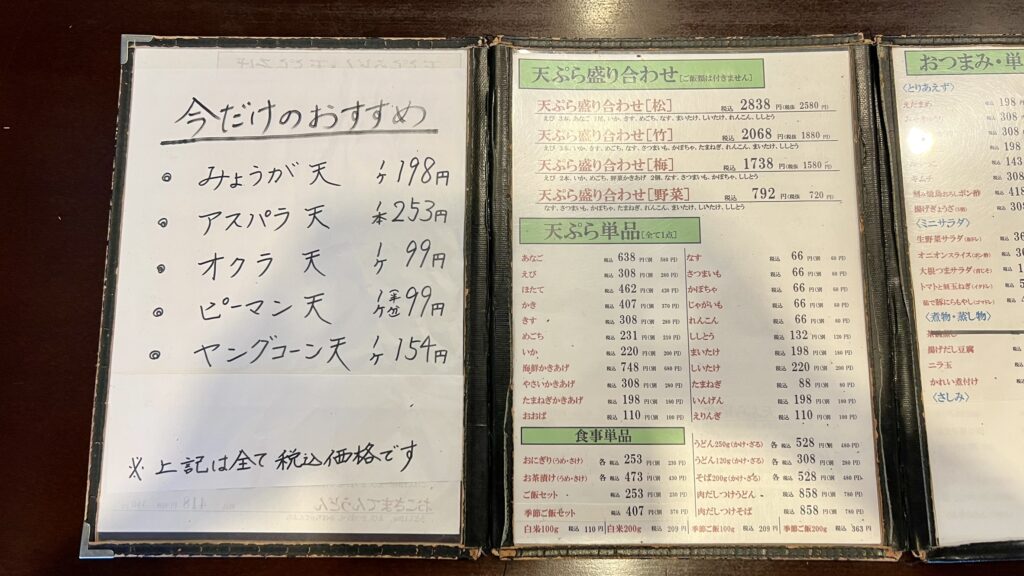 今だけのおすすめ
みょうが天 1ケ198円
アスパラ天 1本253円
オクラ天 1ケ99円
ピーマン天 1ケ半世99円
ヤングコーン天 1ケ154円
※上記は全て税込価格です
おこさまてんうどん
天ぷら盛り合わせ[ご飯類は付きません]
天ぷら盛り合わせ[松] 税込 2838 円(税抜 2580 円)
えび 2本、あなご 1尾、いか、きす、めごち、なす、まいたけ、しいたけ、れんこん、ししとう
天ぷら盛り合わせ[竹] 税込 2068 円(税抜 1880 円)
えび 2本、いか、きす、めごち、なす、さつまいも、かぼちゃ、たまねぎ、れんこん、まいたけ、ししとう
天ぷら盛り合わせ[梅] 税込 1738 円(税抜 1580 円)
えび 2本、いか、めごち、野菜かきあげ 2個、なす、さつまいも、かぼちゃ、ししとう
天ぷら盛り合わせ[野菜] 792 円(税抜 720 円)
なす、さつまいも、かぼちゃ、たまねぎ、れんこん、まいたけ、しいたけ、ししとう
天ぷら単品[全て1点]
あなご 税込 638 円(別 580 円)
えび 税込 308 円(別 280 円)
ほたて 税込 462 円(別 420 円)
かき 税込 407 円(別 370 円)
きす 税込 308 円(別 280 円)
めごち 税込 231 円(別 210 円)
いか 税込 220 円(別 200 円)
海鮮かきあげ 税込 748 円(別 680 円)
やさいかきあげ 税込 308 円(別 280 円)
たまねぎかきあげ 税込 198 円(別 180 円)
おおば 税込 110 円(別 100 円)
なす 税込 66 円(別 60 円)
さつまいも 税込 66 円(別 60 円)
かぼちゃ 税込 66 円(別 60 円)
じゃがいも 税込 66 円(別 60 円)
れんこん 税込 66 円(別 60 円)
ししとう 税込 132 円(別 120 円)
まいたけ 税込 198 円(別 180 円)
しいたけ 税込 220 円(別 200 円)
たまねぎ 税込 88 円(別 80 円)
いんげん 税込 198 円(別 180 円)
えりんぎ 税込 110 円(別 100 円)
食事単品
おにぎり(うめ・さけ) 各 税込 253 円(別 230 円)
お茶漬け(うめ・さけ) 各 税込 473 円(別 430 円)
ご飯セット 税込 253 円(別 230 円)
季節ご飯セット 税込 407 円(別 370 円)
白米100g 税込 110円 白米200g 税込 209円
うどん250g(かけ・ざる) 各 税込 528 円(別 480 円)
うどん120g(かけ・ざる) 各 税込 308 円(別 280 円)
そば200g(かけ・ざる) 各 税込 528 円(別 480 円)
肉だしつけうどん 税込 858 円(別 780 円)
肉だしつけそば 税込 858 円(別 780 円)
季節ご飯100g 税込 209円 季節ご飯200g 税込 363円
おつまみ・単
〈とりあえず〉
えだまめ 税込 198 円
308
308
198
143
キムチ 308
鶏の焼鳥おろしポン酢 418
揚げぎょうざ 308
〈ミニサラダ〉
生野菜サラダ
オニオンスライス(ポン酢)
大根つまサラダ
トマトと刻玉ねぎ
茹で豚にらもやし
〈煮物・蒸し物〉
揚げだし豆腐
ニラ玉
かれい煮付け
〈さしみ〉